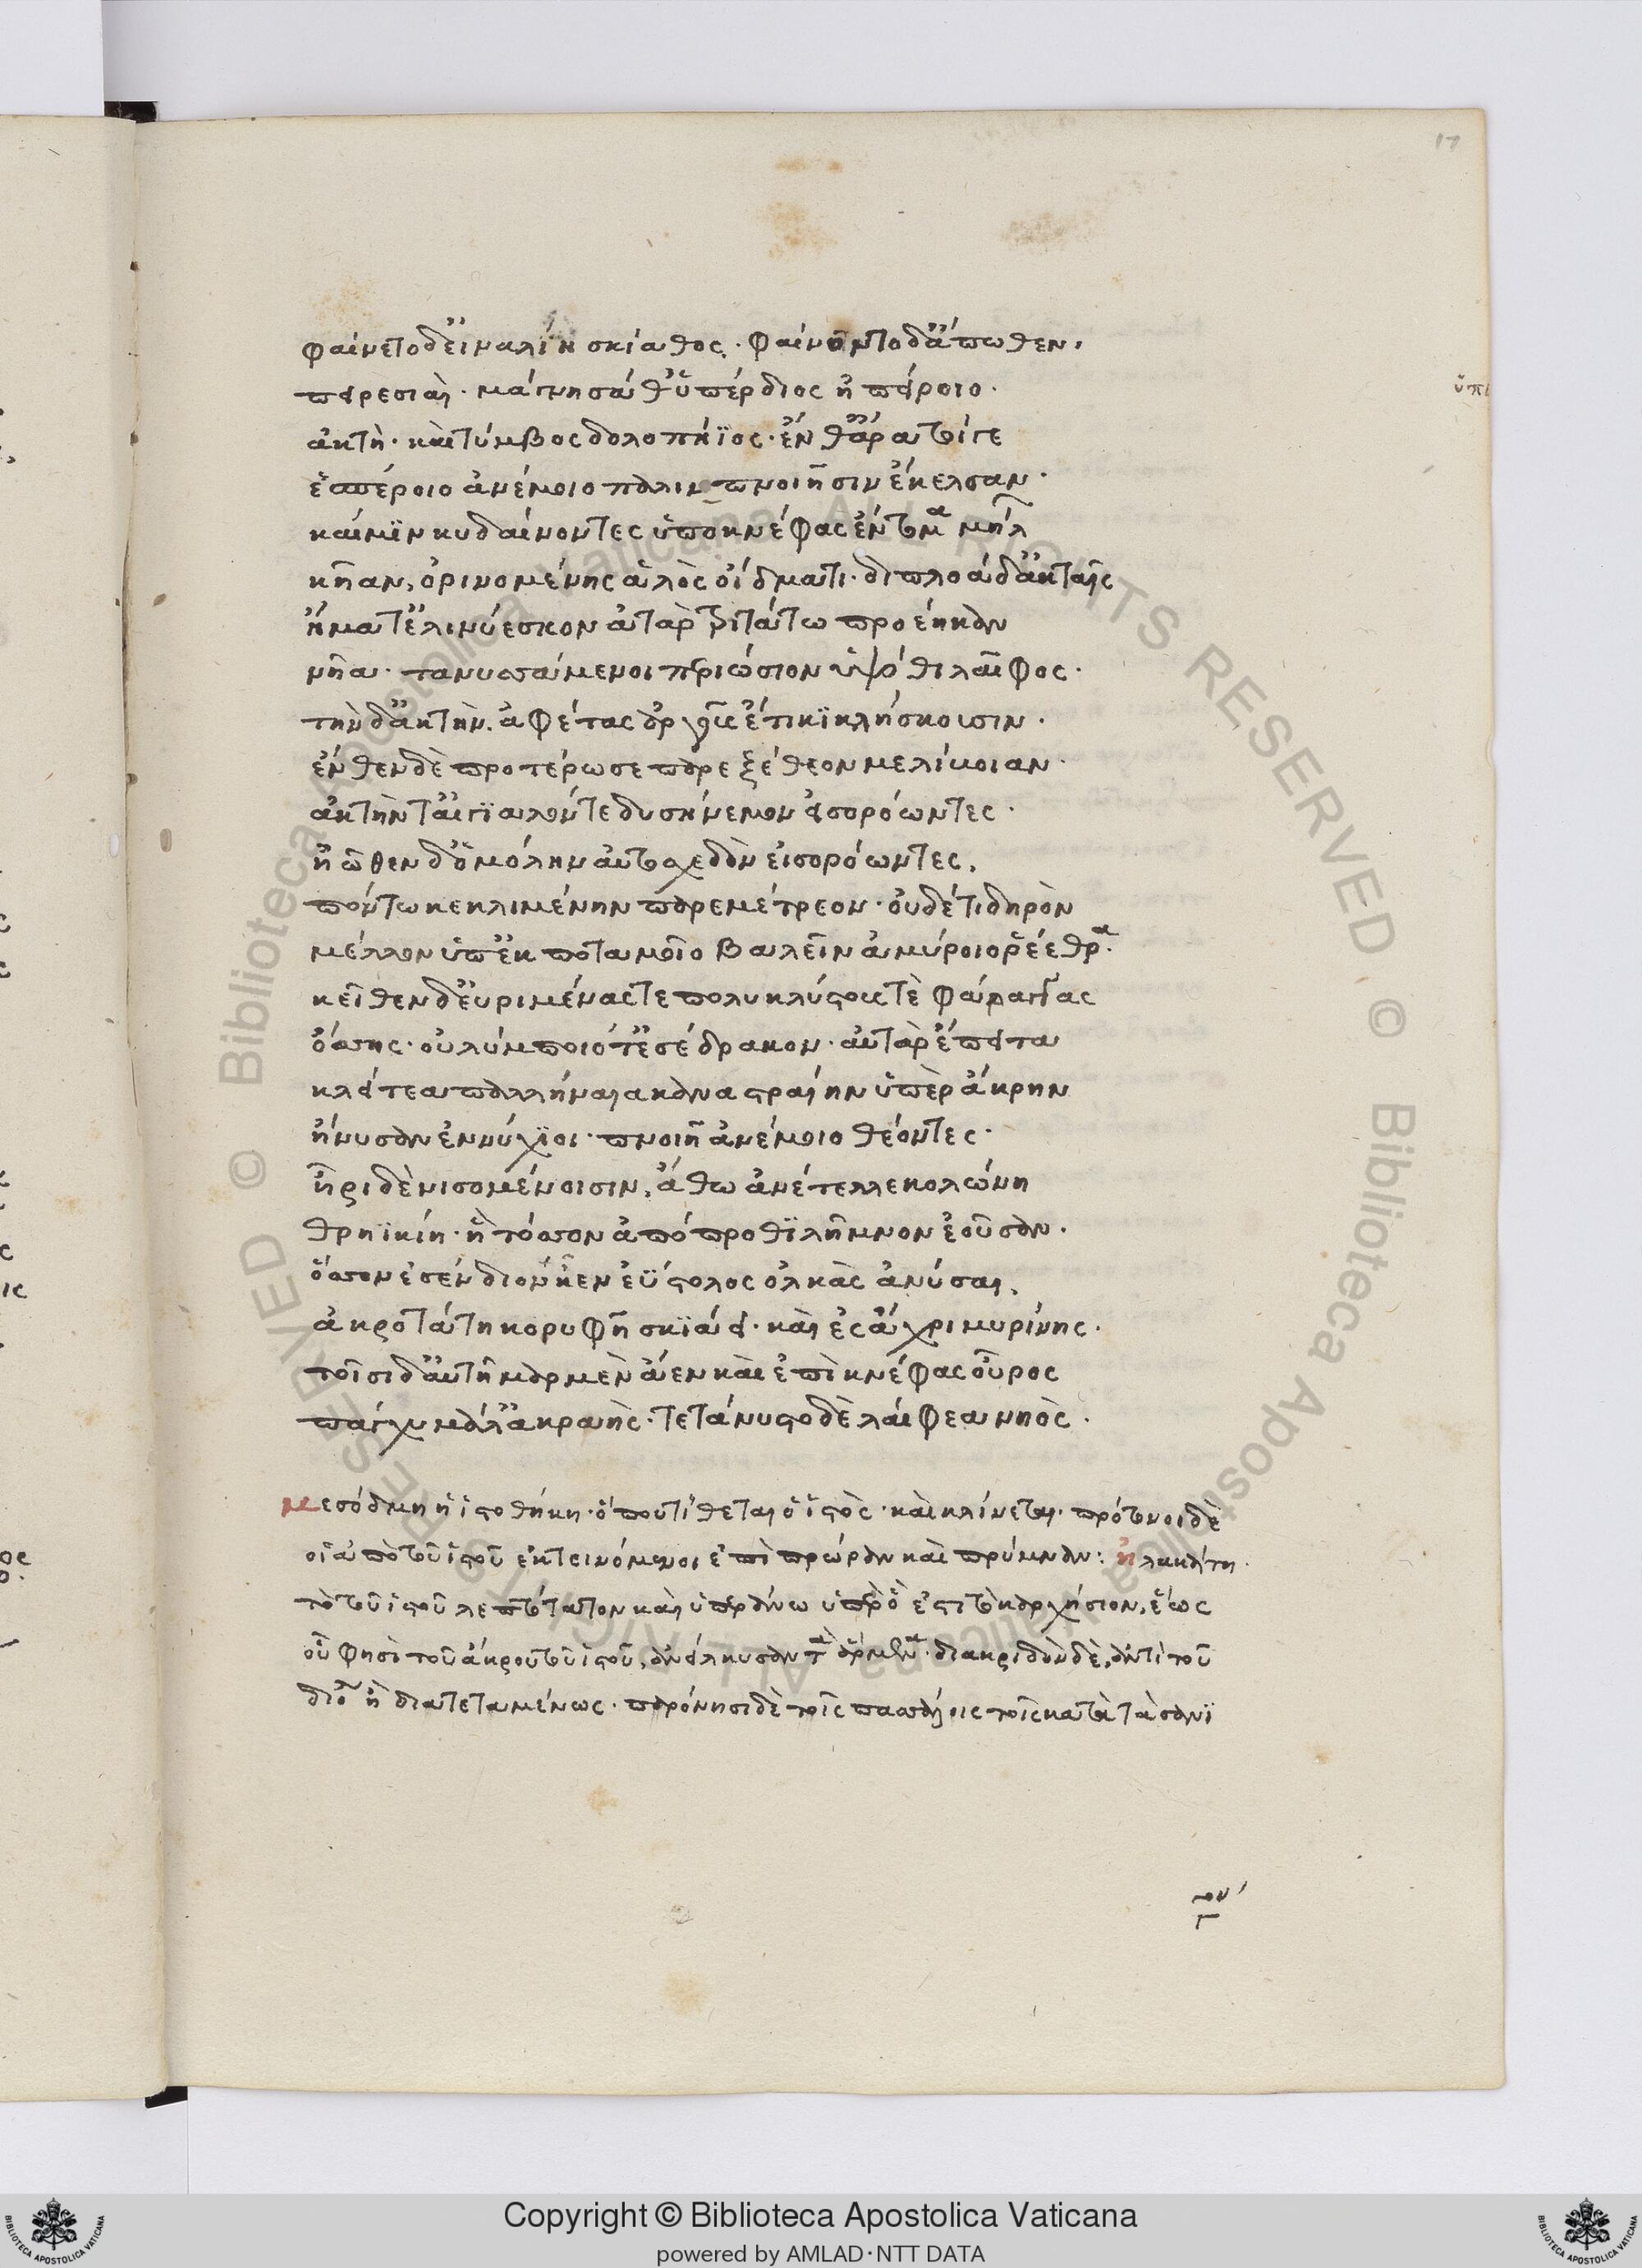 17
φαίνετο δ' εἰναλίη σκίαθος· φαίνοντο δ' ἄπωθεν,
πειρεσιαὶ· μάγνησά θ' ὑπεύδιος ἠπείροιο·
ἀκτὴ· καὶ τύμβος δολοπήϊος· ἔνθ' ἄρα τοίγε
ἑσπέριοι ἀνέμοιο παλιμπνοίῃσιν ἔκελσαν·
καί μιν κυδαίνοντες ὑπὸ κνέφας ἔντομα μήλ
κῆαν, ὀρινομένης ἁλὸς οἴδματι· διπλόα δ' ἀκταῖς
ἤματ' ἐλινύεσκον ἀτὰρ τριτάτω προέηκαν
νῆα· τανυσσάμενοι περιώσιον ὑψόθι λαῖφος·
τὴν δ' ἀκτὴν. ἀφέτας ἀργοῦς ἔτι κικλήσκουσιν·
ἔνθεν δὲ προτέρωσε παρεξέθεον μελίβοιαν·
ἀκτήν τ' αἰγιαλόν τε δυσήνεμον εἰσορόωντες·
ἠῶθεν δ' ὁμόλην αὐτοσχεδὸν εἰσορόωντες,
πόντω κεκλιμένην παρεμέτρεον· οὐδέτι δηρὸν
μέλλον ὑπὲκ ποταμοῖο βαλεῖν ἀμύροιο ῥέεθρα·
κεῖθεν δ' εὐρυμένας τε πολυκλύστους τὲ φάραγγας
ὄσσης· οὐλύμποιό τ' ἐσέδρακον· αὐτὰρ ἔπειτα
κλείτεα παλλήναια καναστραίην ὑπὲρ ἄκρην
ἤνυσαν ἐννύχιοι· πνοιῇ ἀνέμοιο θέοντες·
ἦρι δὲ νισομένοισιν, ἄθω ἀνέτελλε κολώνη
θρηϊκίη· ἣ τόσσον ἀπόπροθι λῆμνον ἐοῦσαν·
ὅσσον ἐς ἔνδιόν κεν ἐΰστολος ὁλκὰς ἀνύσαι,
ἀκροτάτη κορυφῇ σκιάει· καὶ ἐς ἄχρι μυρίνης·
τοῖσι δ' αὐτῆμαρ μὲν ἄεν καὶ ἐπὶ κνέφας οὖρος
πάγχυ μάλ' ἀκραὴς· τετάνυστο δὲ λαίφεα νηὸς·
μεσόδμη ἡ ἱστοθήκη· ὅπου τίθεται ὁ ἱστὸς· καὶ κλίνεται· πρότονοι δὲ
οἱ ἀπὸ τοῦ ἱστοῦ ἐκτεινόμενοι ἐπὶ πρώραν καὶ πρύμναν: ἠλακάτη·
τὸ τοῦ ἱστοῦ λεπτότατον καὶ ὑπεράνω ὑπὲρ ὅ ἐστι τὸ καρχήσιον, ἕως
οὗ φησὶ τοῦ ἄκρου τοῦ ἱστοῦ, ἀνείλκυσαν τὰ ἄρμενα· διακριδὸν δὲ, ἀντὶ τοῦ
διὸ ἢ διατεταμένως· περόνησι δὲ τοῖς πασσάλοις τοῖς κατὰ τὰ σανί
Copyright © Biblioteca Apostolica Vaticana
powered by AMLAD·NTT DATA